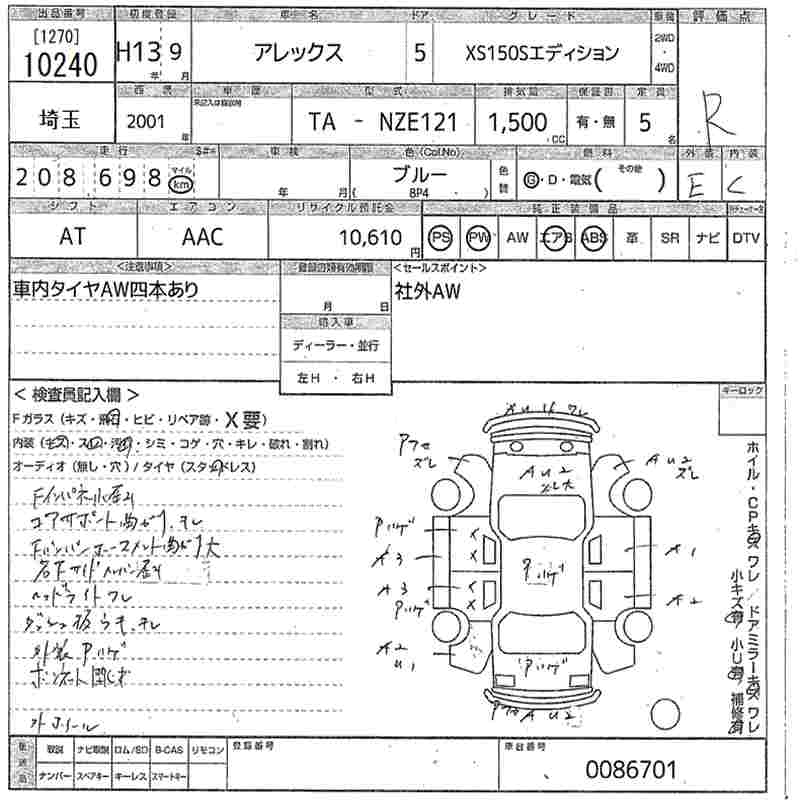 出品番号 初度登録 車名 ドア グレード 車種 評価点
[1270]
10240 H13 年 9 月 アレックス 5 XS150Sエディション 2WD・4WD
R
西暦 車歴 型式 排気量 保証書 定員
埼玉 2001 年 未記入は自家用 TA - NZE121 1,500 cc 有・無 5 名
走行 車検 色(Col.No) 燃料 外装 内装
208698 マイル km 年 月 ブルー ( 8P4 ) 色替 G・D・電気( その他 ) E C
シフト エアコン リサイクル預託金 純正装備品
AT AAC 10,610 円 PS PW AW エアB ABS 革 SR ナビ DTV
<注意事項> <セールスポイント>
車内タイヤAW四本あり 月 日 社外AW
輸入車
ディーラー・並行
左H ・ 右H
< 検査員記入欄 > キーロック
Fガラス (キズ・飛石・ヒビ・リペア跡・X要)
内装 (キズ・スレ・汚れ・シミ・コゲ・穴・キレ・破れ・割れ)
オーディオ (無し・穴) / タイヤ (スタッドレス)
Fインパネル歪み
コアサポート曲がり、サビ
ヘッドライトワレ
外装Pハゲ
ボンネット閉じず
外ホイール
AU4ワレ
Pフセ
ズレ
AU2
ズレ大
AU2
ズレ
Pハゲ
A3
A1
Pハゲ
A3
Pハゲ
A2
A2
U1
Pハゲ
AU2
ホイル・CPキズワレ / ドアミラーキズワレ
小キズ有 小U有 補修有
取説 ナビ取説 ロム/SD B-CAS リモコン 登録番号 車台番号
ナンバー スペアキー キーレス スマートキー 0086701